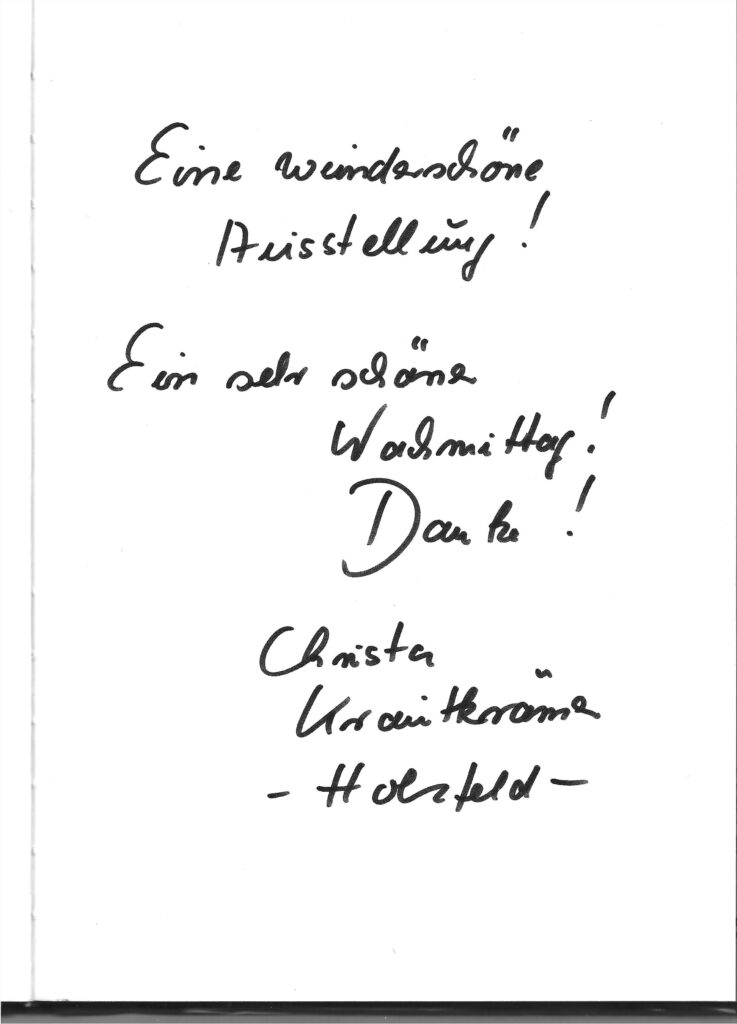 Eine wunderschöne
Ausstellung!
Ein sehr schöner
Nachmittag!
Danke!
Christa
Krautkrämer
- Holzfeld -